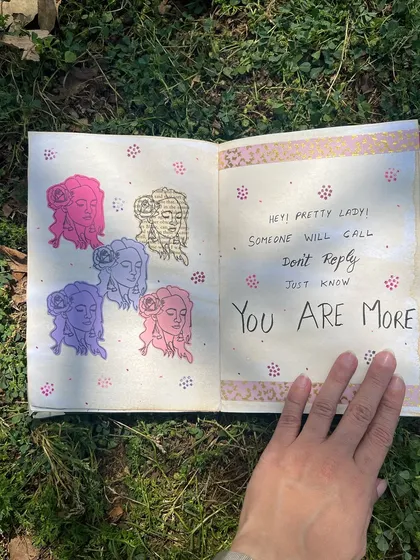 HEY! PRETTY LADY!
SOMEONE WILL CALL
Don't Reply
JUST KNOW
YOU ARE MORE